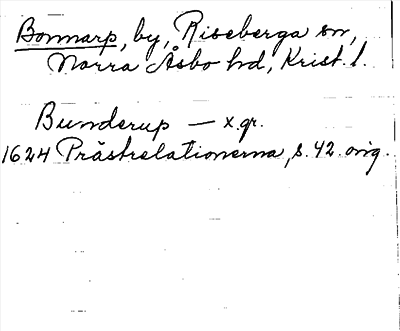 Bonnarp, by, Riseberga sn,
Norra Åsbo hd, Krist. l.
Bunderup — x.gr.
1624 Prästrelationerna, s. 42. orig.